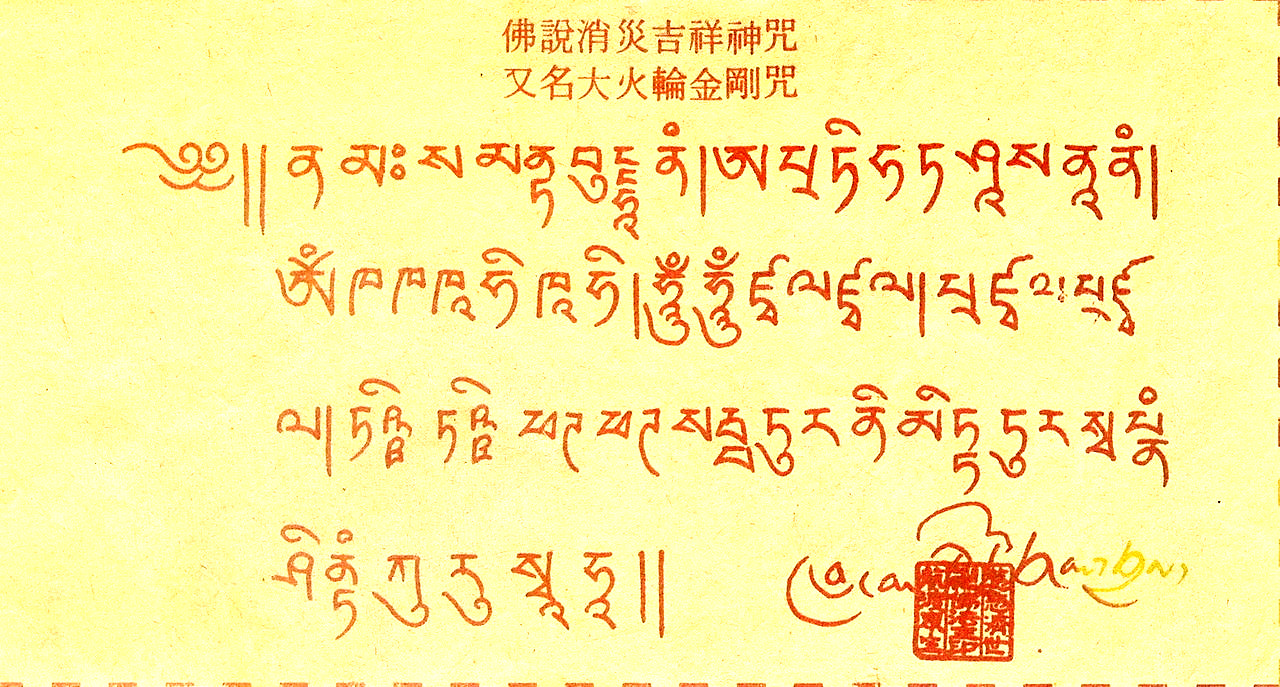 佛說消災吉祥神咒
又名大火輪金剛咒
༄༅།། ན མཿ ས མ ནྟ བུ དྡྷཱ ནཾ།ཨ པྲ ཏི ཧ ཏ ཤཱ ས ནཱ ནཾ།
ཨོཾ ཁ ཁ ཁཱ ཧི ཁཱ ཧི།ཧཱུྃ ཧཱུྃ ཛྭ ལ ཛྭ ལ།པྲ ཛྭ ལ པྲ ཛྭ
ལ།ཏ ཥྛི ཏ ཥྛི ཕ ཊ ཕ ཊ ས རྦ དུ ར ནི མི ཏྟ དུ ར སྭ པྣཾ
ཤི ནྟཾ ཀུ རུ སྭཱ ཧཱ།།